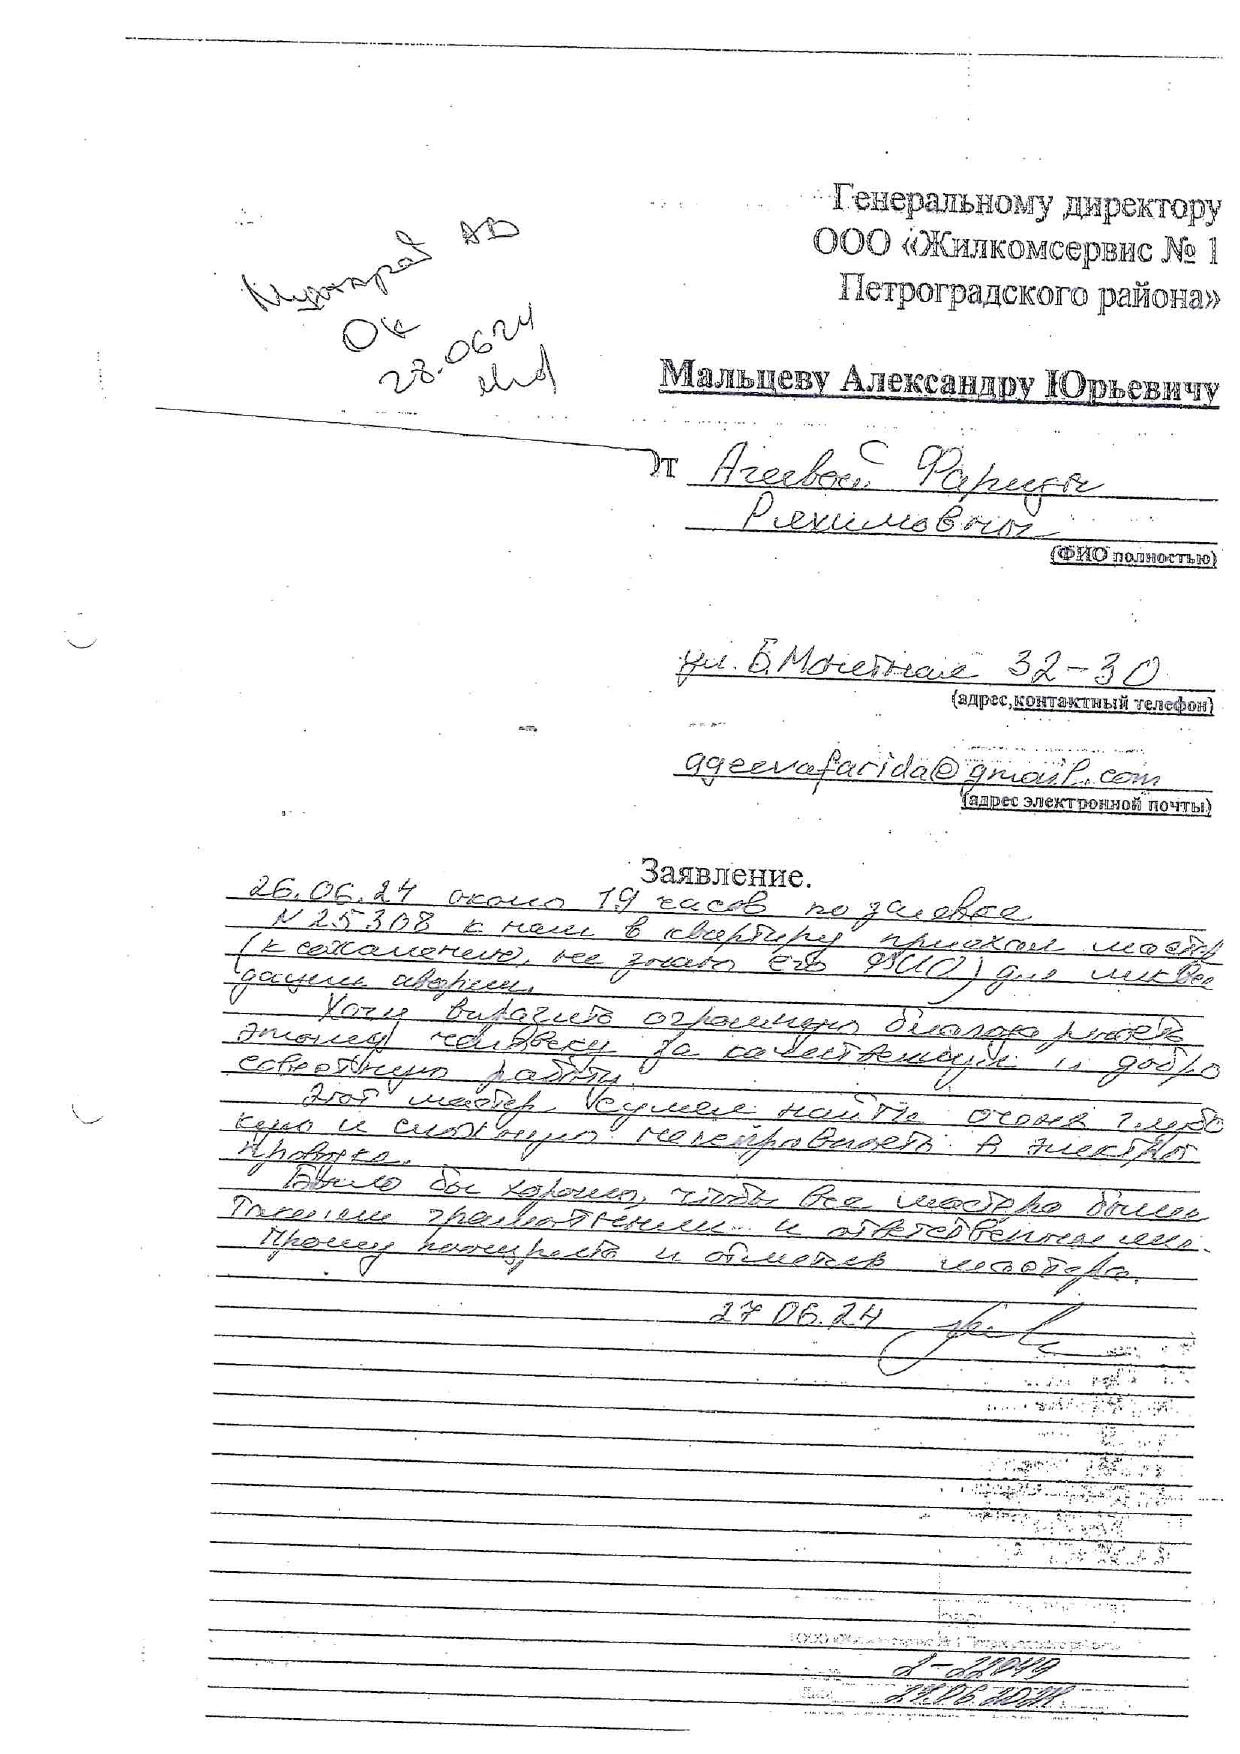 Генеральному директору
ООО «Жилкомсервис № 1
Петроградского района»
АВ
ОК
28.0624
Мальцеву Александру Юрьевичу
От Агеевой Фариды
Рахимовны
(ФИО полностью)
ул. Б.Монетная 32-30
(адрес,контактный телефон)
ageevafarida@gmail.com
(адрес электронной почты)
Заявление.
26.06.24 около 19 часов по заявке
N 25308 к нам в квартиру приехал мастер
(к сожалению, не знаю его ФИО) для ликви
дации аварии.
Хочу выразить огромную благодарность
этому человеку за качественную и добро
совестную работу.
Этот мастер сумел найти очень глубо
кую и сложную неисправность в электро
проводке.
Было бы хорошо, чтобы все мастера были
такими грамотными и ответственными.
Прошу поощрить и отметить мастера.
27.06.24
ООО «Жилкомсервис № 1 Петроградского района»
2-22049
27.06.2024